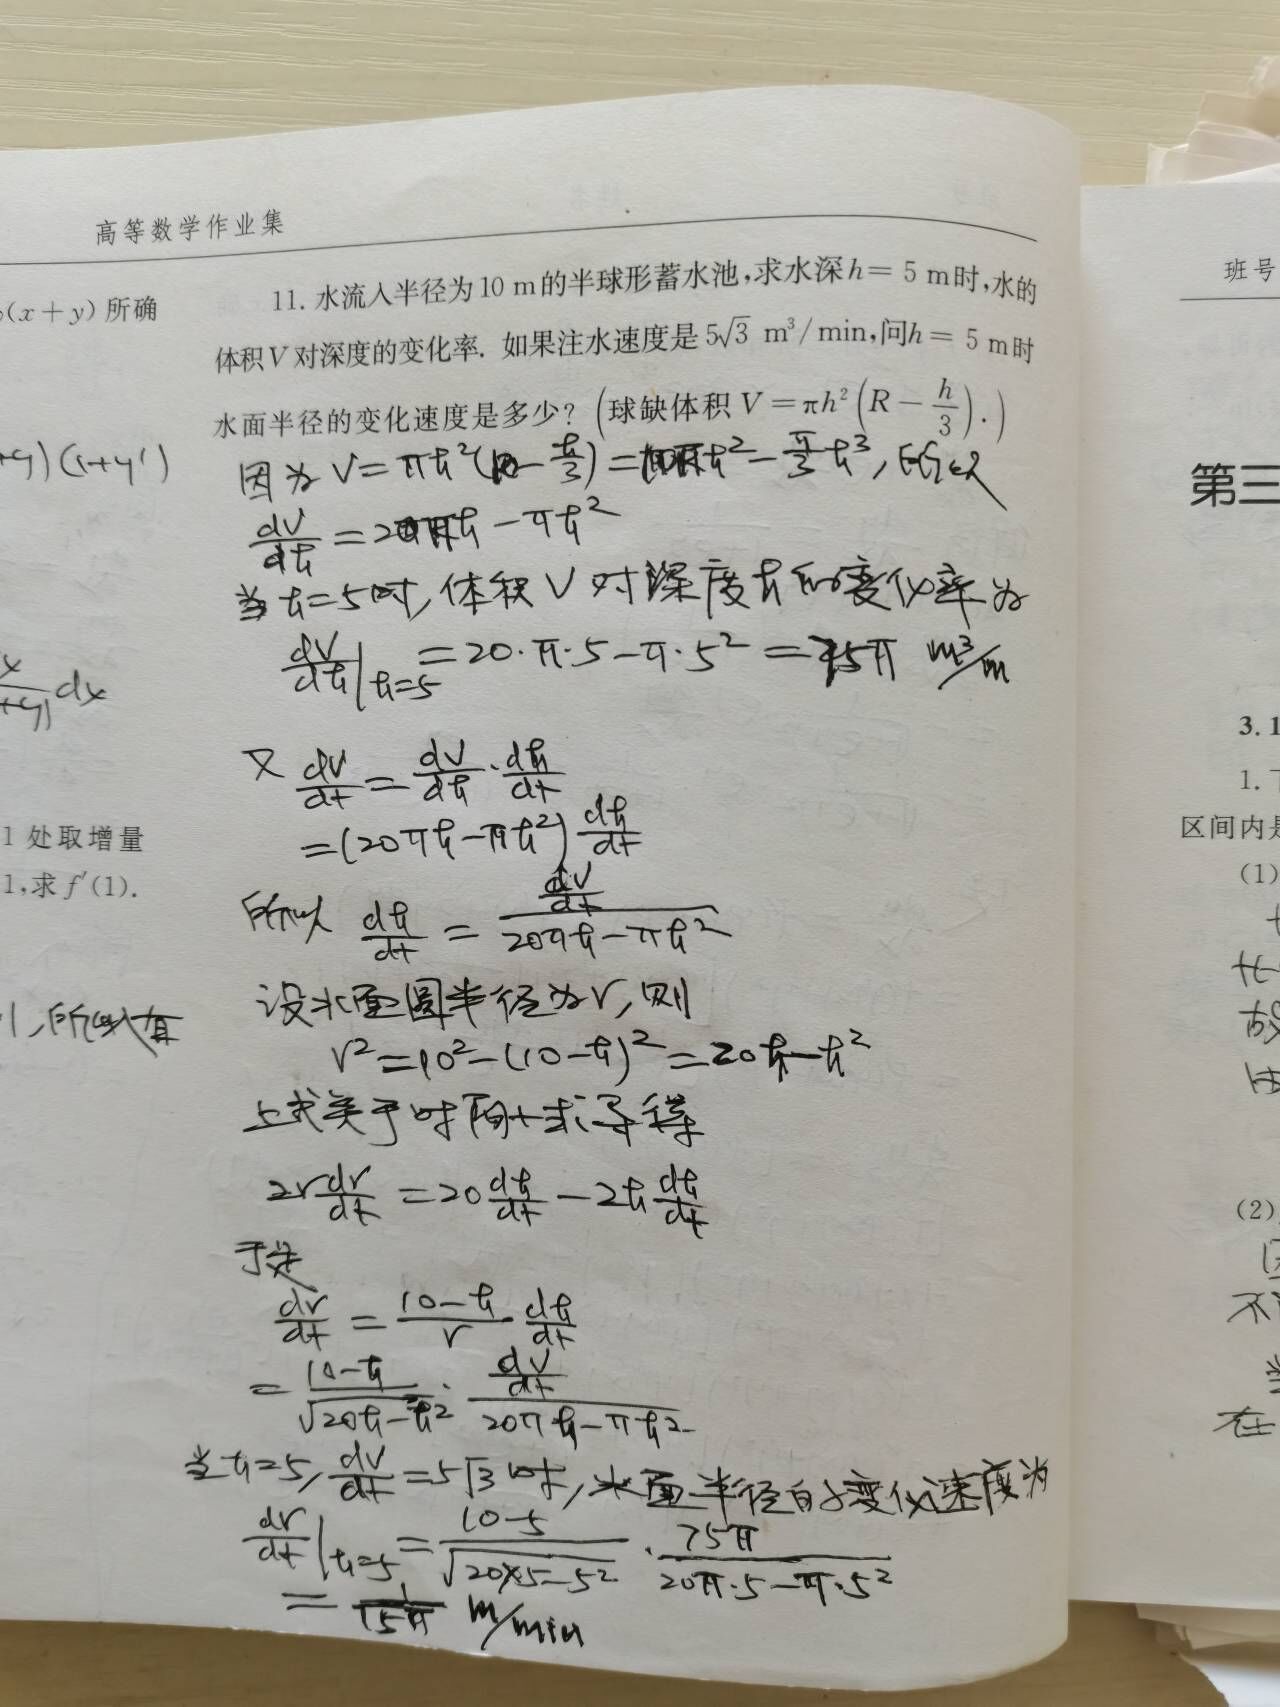 高等数学作业集
(x+y)所确
+y)(1+y')
dx
1处取增量
1,求f′(1).
11. 水流入半径为10 m的半球形蓄水池,求水深h= 5 m时,水的
体积V对深度的变化率. 如果注水速度是5√3 m³/min,问h= 5 m时
水面半径的变化速度是多少? (球缺体积V=πh²(R-h/3).)
因为V=πh²(10-h/3)=10πh²-π/3h³,所以
dV/dh=20πh-πh²
当h=5时,体积V对深度h的变化率为
dV/dh|h=5=20·π·5-π·5²=75π m³/m
又dV/dt=dV/dh·dh/dt
=(20πh-πh²)dh/dt
所以 dh/dt=(dV/dt)/(20πh-πh²)
设水面圆半径为r,则
r²=10²-(10-h)²=20h-h²
上式关于时间t求导得
2r dr/dt=20dh/dt-2h dh/dt
于是
dr/dt=(10-h)/r·dh/dt
=(10-h)/√(20h-h²)·(dV/dt)/(20πh-πh²)
当h=5,dV/dt=5√3时,水面半径的变化速度为
dr/dt|h=5=(10-5)/√(20×5-5²)·75π/(20π·5-π·5²)
=1/(15π) m/min
班号
第三
3.1
区间内是
(1)
故
(2)
在